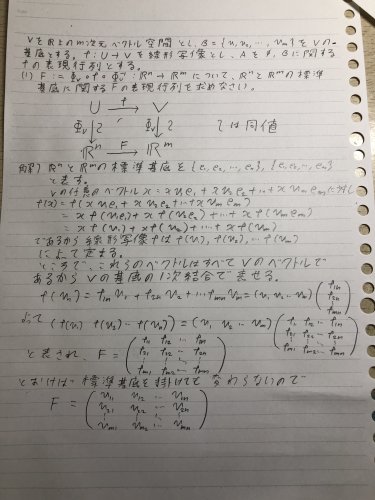 VをR上のm次元ベクトル空間とし、B={v₁,v₂,…,vₘ}をVの
基底とする。f:U→Vを線形写像とし、AをB,Bに関する
fの表現行列とする。
(1) F:=Φᵥ∘f∘Φᵤ⁻¹:Rⁿ→Rᵐについて、RⁿとRᵐの標準
基底に関するFの表現行列を求めなさい。
U f→ V
Φᵤ↓≀ Φᵥ↓≀ ≀は同値
Rⁿ F→ Rᵐ
解答) RⁿとRᵐの標準基底を{e₁,e₂,…,eₙ},{e₁,e₂,…,eₘ}
と表す。
Vの任意のベクトルx=xv₁e₁+xv₂e₂+…+xvₘeₘに対し
f(x)=f(xv₁e₁+xv₂e₂+…+xvₘeₘ)
=xf(v₁e₁)+xf(v₂e₂)+…+xf(vₘeₘ)
=xf(v₁)+xf(v₂)+…+xf(vₘ)
であるから線形写像fはf(v₁),f(v₂),…f(vₘ)
によって定まる。
ところで、これらのベクトルはすべてVのベクトルで
あるからVの基底の1次結合で表せる。
f(vₙ)=f₁ₙv₁+f₂ₙv₂+…+fₘₙvₘ=(v₁ v₂…vₘ)(f₁ₙ f₂ₙ ⋮ fₘₙ)
よって (f(v₁) f(v₂)…f(vₙ))=(v₁ v₂…vₘ)(f₁₁ f₁₂…f₁ₙ
f₂₁ f₂₂…f₂ₙ
⋮ ⋮ ⋮
fₘ₁ fₘ₂…fₘₙ)
と表され、F=(f₁₁ f₁₂…f₁ₙ
f₂₁ f₂₂…f₂ₙ
⋮ ⋮ ⋮
fₘ₁ fₘ₂…fₘₙ)
とおけば標準基底を掛けても変わらないので
F=(v₁₁ v₁₂…v₁ₙ
v₂₁ v₂₂…v₂ₙ
⋮ ⋮ ⋮
vₘ₁ vₘ₂…vₘₙ)